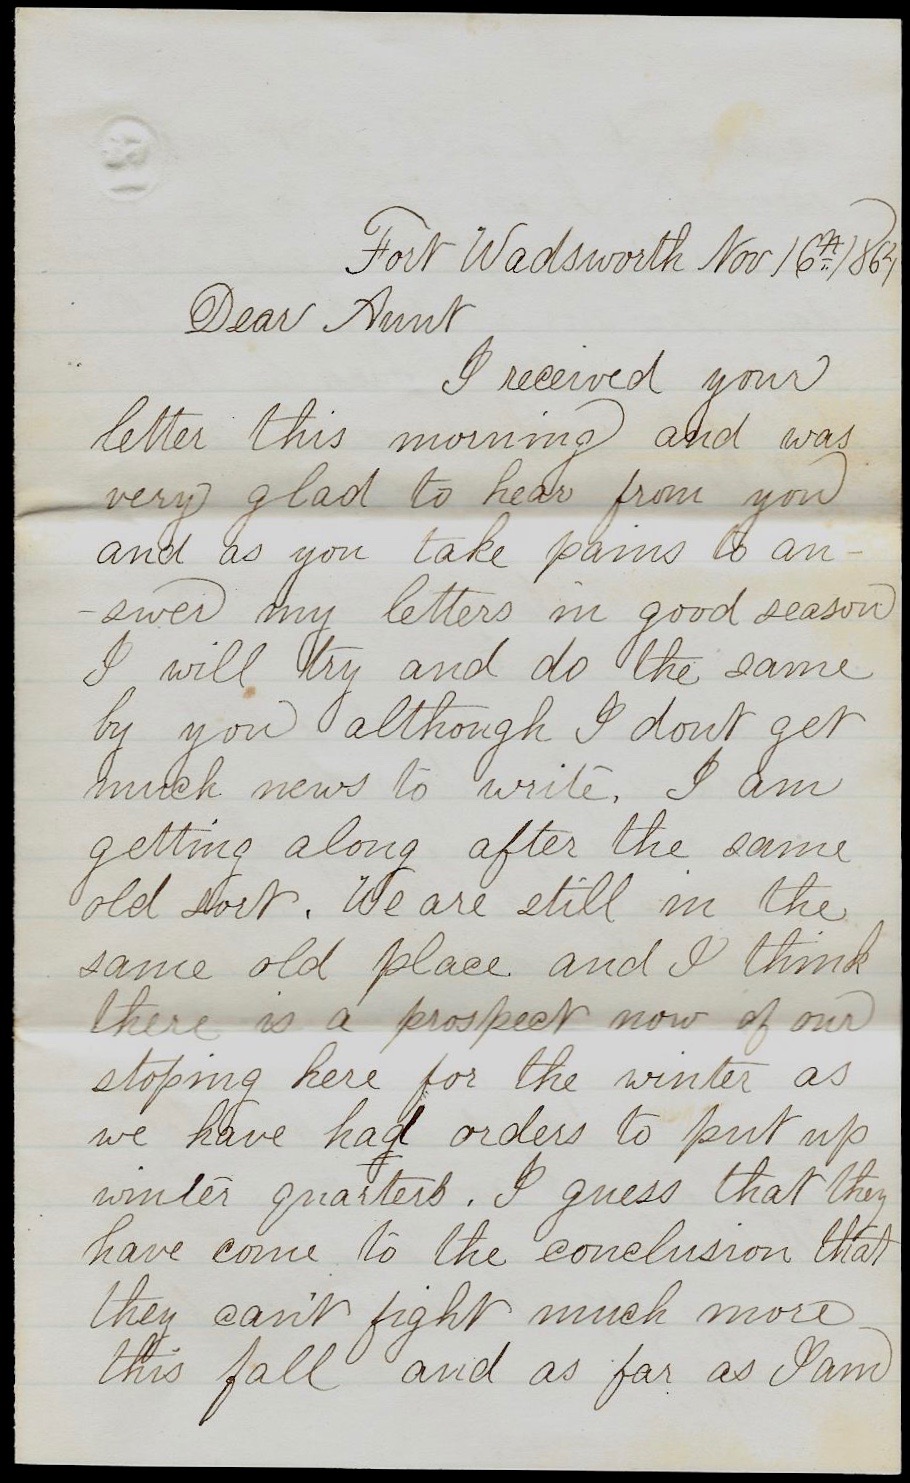 Fort Wadsworth Nov 16th 1864
Dear Aunt
I received your
letter this morning and was
very glad to hear from you
and as you take pains to an-
-swer my letters in good season
I will try and do the same
by you although I dont get
much news to write. I am
getting along after the same
old sort. We are still in the
same old place and I think
there is a prospect now of our
stoping here for the winter as
we have had orders to put up
winter quarters. I guess that they
have come to the conclusion that
they can't fight much more
this fall and as far as I am